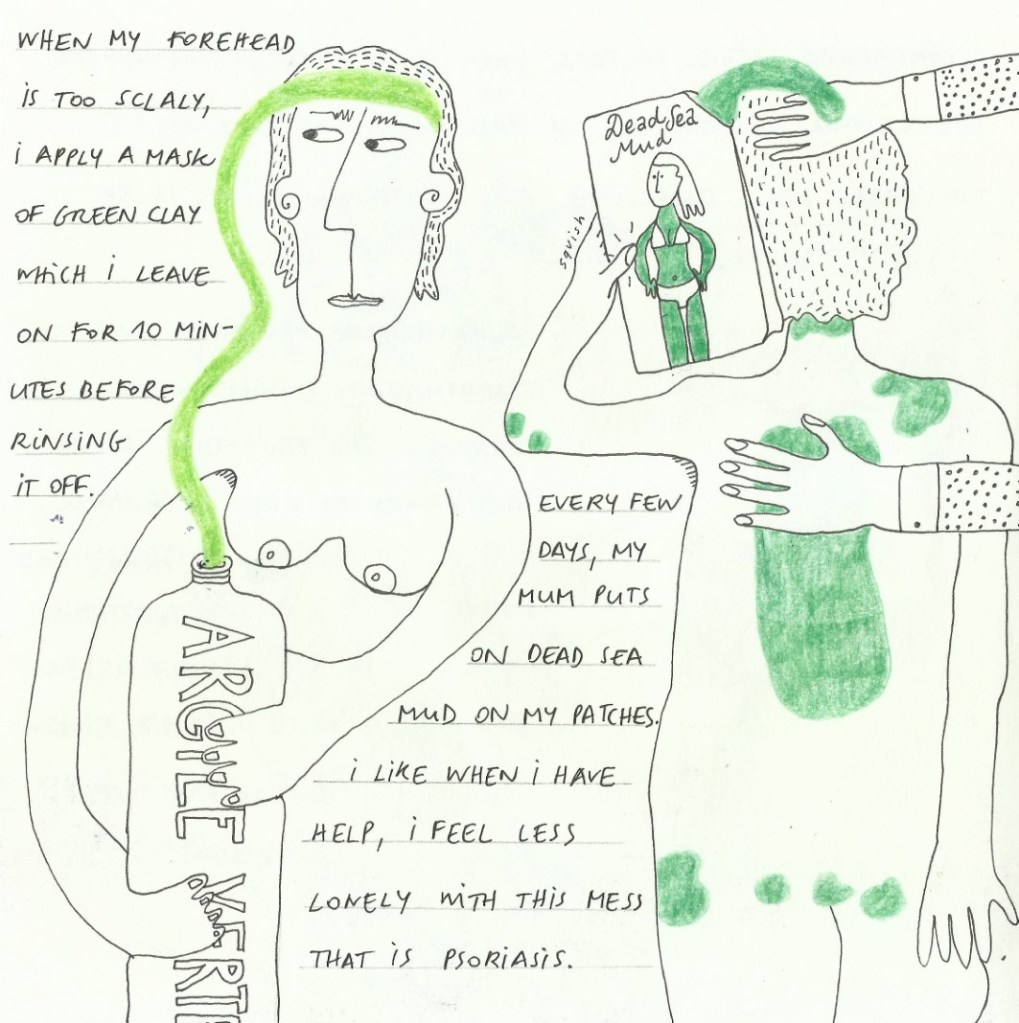 WHEN MY FOREHEAD
iS TOO SCLALY,
i APPLY A MASK
OF GREEN CLAY
WHiCH i LEAVE
ON FOR 10 MiN-
UTES BEFORE
RiNSiNG
iT OFF.
ARGiLE VERTE
Dead Sea
Mud
squish
EVERY FEW
DAYS, MY
MUM PUTS
ON DEAD SEA
MUD ON MY PATCHES.
i LiKE WHEN i HAVE
HELP, i FEEL LESS
LONELY WiTH THiS MESS
THAT iS PSORiASiS.